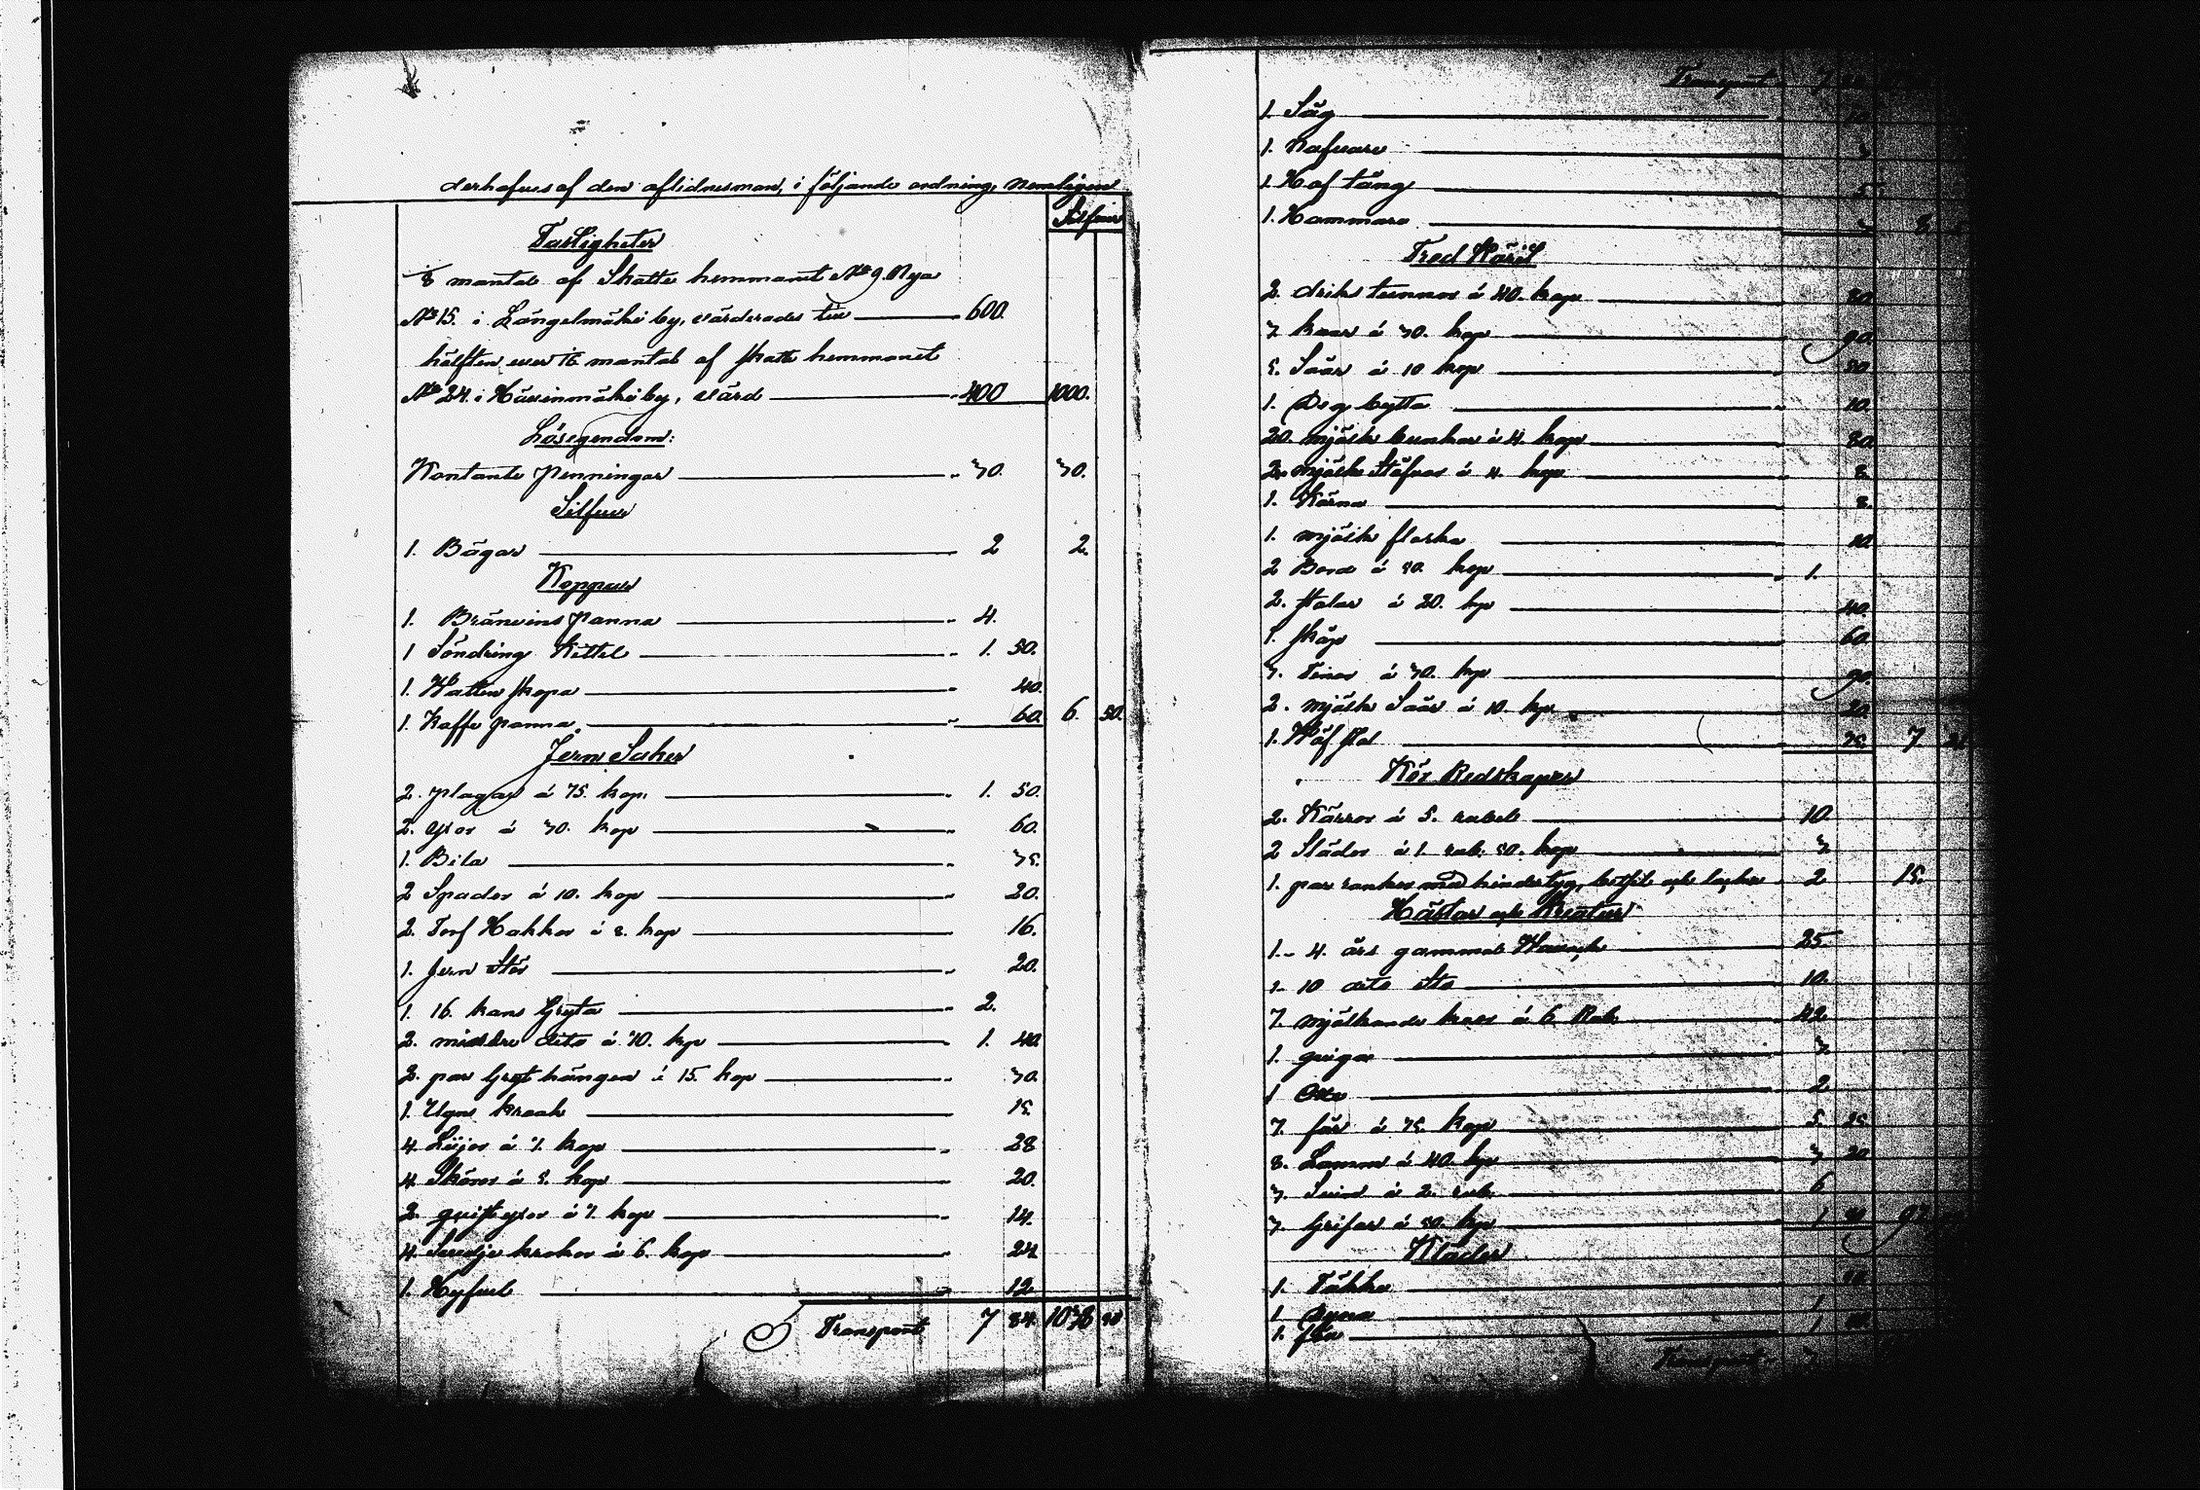 derhafues af den aflidnesman, i följande ordning, nemligen
Silfuer
Fastigheter
1/8 mantal af Skatte hemmanet No 9 Nya
No 15. i Längelmäki by, värderades till 600.
hälften uti 1/6 mantal af skatte hemmanet
No 24. i Häuinmäki by, värd 400 1000.
Lösegendom:
Kontante Penningar 30. 30.
Silfuer
1. Bägar 2 2.
Koppar
1. Bränvins panna 4.
1 Söndring Kittel 1. 50.
1. Watten skopa 40.
1. Kaffe panna 60. 6. 50.
Jern Saker
2. plogar á 75. kop. 1. 50.
2. yxor á 30. kop 60.
1. Bila 35.
2 Spador á 10. kop 20.
2. Torf Hakkor á 8. kop 16.
1. Jern Stör 20.
1. 16. kans Gryta 2.
2. mindre dito á 70. kp 1. 40.
2. par Gryt hängen á 15. kop 30.
1. Ugns kraak 15.
4. Liijor á 7. kop 28
4. Skäror á 5. kop 20.
2. quist yxor á 7. kop 14.
4. Suedje krokor á 6. kop 24
1. Hyfuel 12
Transport 7 84. 1038 50
Transport
1. Såg
1. Nafuare
1. Hof tång 5
1. Hammare 8
Träd Käril
2. driks tunnor á 40. kop 80.
3 kaar á 30. kop 90.
5. Såår á 10 kop 50
1. Deg bytta 10.
20. mjölk bunkar á 4. kop 80.
2. mjölk Stäfuor á 4. kop 8.
1. Kärna 8.
1. mjölk flaska 10.
2 Bord á 50. kop 1.
2. stolar á 20. kp 40.
1. skåp 60.
3. Tinor á 30. kp 90.
2. mjölk Såår á 10. kp 20.
1. Wäf stol 75. 7
Kör Redskaper
2. Kärror á 5. rubel 10.
2 Slädor á 1. rub. 50. kop 3.
1. par rankor med hindertyg, betsel och lockor 2 15.
Hästar och Kreatur
1.- 4. års gammal Wallack 25.
1- 10 dito Sto 10.
7. mjölkande koor á 6. Rub. 42
1. quiga 3.
1 Oxe 2.
7. får á 75. kop 5. 25
8. Lamm á 40. kp 3 20
3. Suin á 2. rub. 6
3. Grisar á 50. kp 1 50 97
Kläder
1. Täkke
1 Dyna 1
1.
Transport